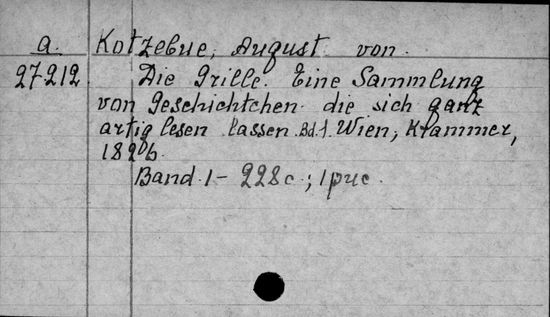 a. Kotzebue, August von.
27.212. Die Grille. Eine Sammlung
von Geschichtchen die sich ganz
artig lesen lassen. Bd.1. Wien, Krammer,
1826.
Band 1 - 228c.; 1рис.